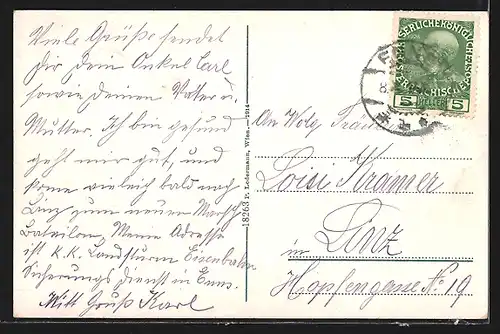 Viele Grüße sendet
dir dein Onkel Carl
sowie deinen Vater u.
Mutter. Ich bin gesund
geht mir gut, und
kome vieleich bald nach
Linz zum neuen Marsch
Batailon, Meine Adresse
ist K.K. Landsturm Eisenbahn
Sicherungs dienst in Enns.
Mitt Gruß Karl
18263 P. Ledermann, Wien. — 1914
KAISERLICHE KÖNIGLICHE
ÖSTERREICHISCHE POST
5 HELLER 5
An Wolg
Loisi Kramer
in Linz
Hopfengasse No 19